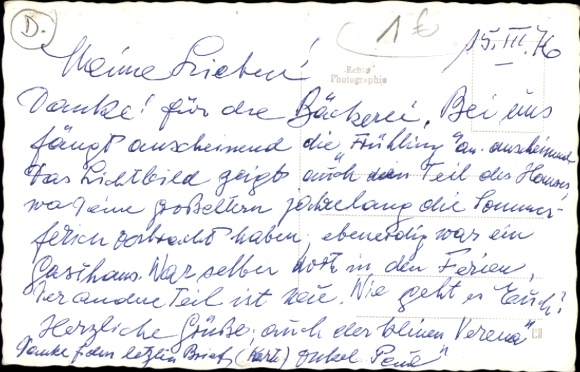 D.
1 €
15. III. 76
Meine Lieben!
Echte
Photographie
Danke! für die Bäckerei. Bei uns
fängt anscheinend die Frühling an
Das Lichtbild zeigt auch den Teil des Hauses,
wo Großeltern jahrelang die Sommer-
ferien verbracht haben, ebenerdig war ein
Gasthaus. War selber dort in den Ferien,
Der andere Teil ist neu. Wie geht es Euch?
Herzliche Grüße, auch der kleinen Verena"
Danke f den letzten Brief, (Karte) Onkel Paul"